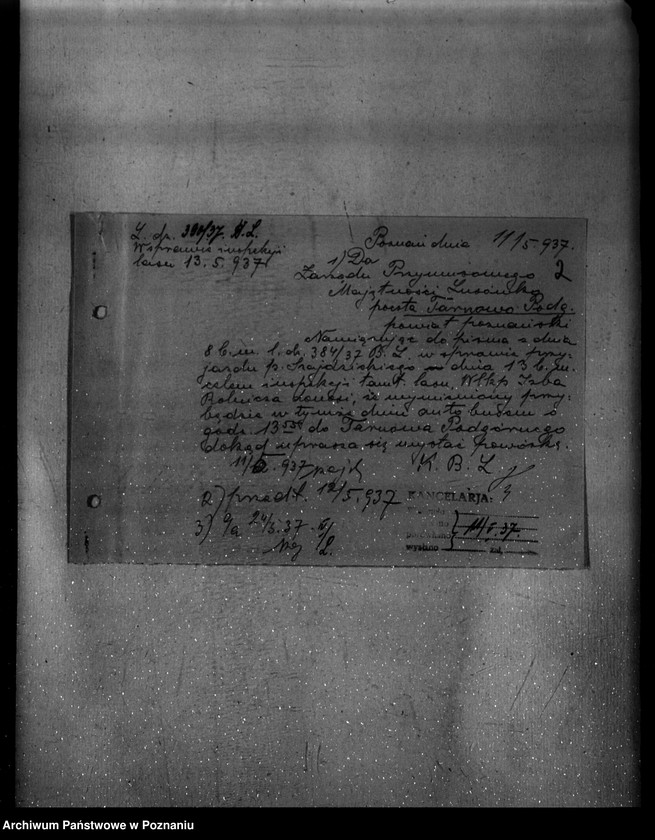 L. dz. 380/37. B.L.
W sprawie inspekcji
lasu 13.5.937
Poznań dnia 11/5.937.
1) Do
Zarządu Przymusowego 2
Majętności Lusówko
poczta Tarnowo Podg.
powiat poznański
Nawiązując do pisma z dnia
8 b.m. l.dz. 384/37 B.L. w sprawie przy-
jazdu p. Szajdzickiego w dnia 13 b.m.
celem inspekcji tamt. lasu, Wlkp. Izba
Rolnicza donosi, iż wymieniony przy-
będzie w tymże dniu autobusem o
godz. 13 do Tarnowa Podgórnego
dokąd uprasza się wysłać powózkę.
11/5.937 K. B. L
2) przedł. 12/5.937
3) a/a 24/5.37
KANCELARJA:
11/5.37.
wysłano zał.
Archiwum Państwowe w Poznaniu